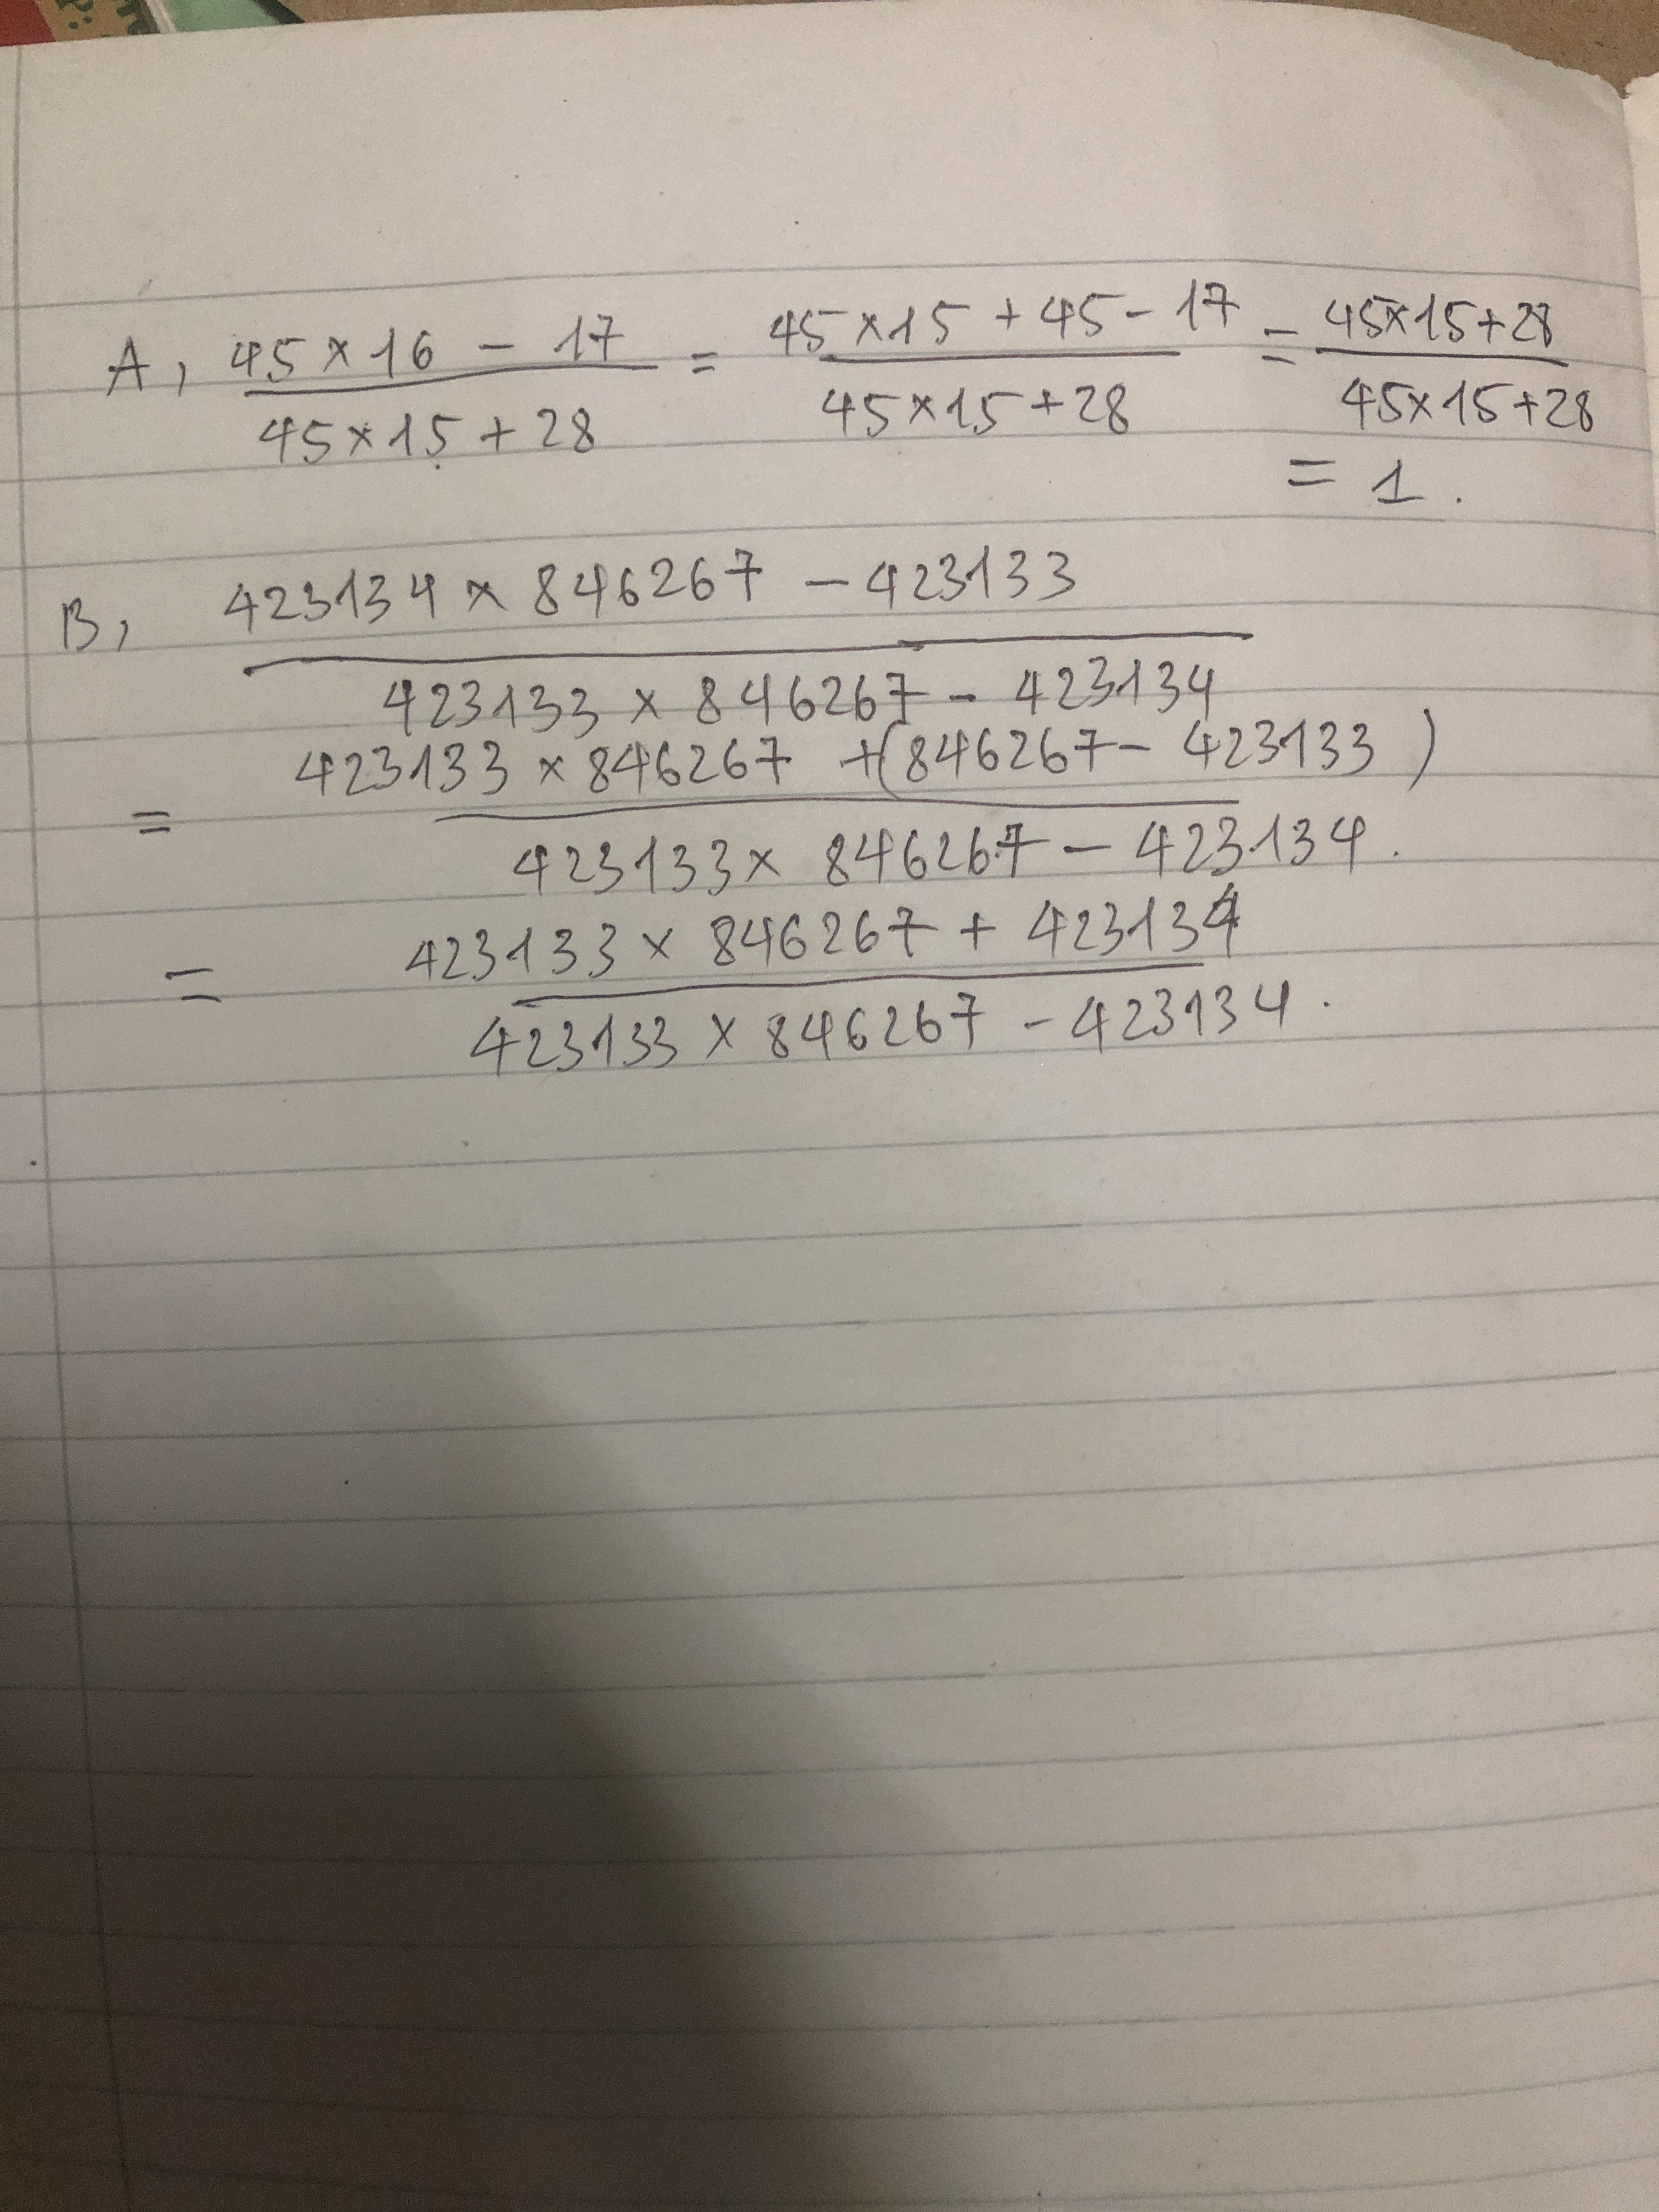 A, 45 × 16 − 17 / 45 × 15 + 28 = 45 × 15 + 45 − 17 / 45 × 15 + 28 = 45 × 15 + 28 / 45 × 15 + 28
= 1.
B, 423134 × 846267 − 423133
423133 × 846267 − 423134
= 423133 × 846267 + (846267 − 423133)
423133 × 846267 − 423134.
= 423133 × 846267 + 423134
423133 × 846267 − 423134.